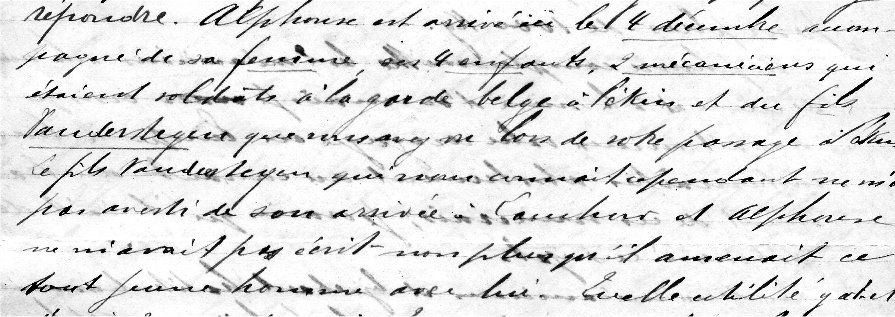 répondre. Alphonse est arrivé ici le 4 décembre accom-
pagné de sa femme, ses 4 enfants, 2 mécaniciens qui
étaient soldats à la garde belge à Pékin et du fils
Vandersteegen que vous avez vu lors de votre passage à
Le fils Vandersteegen qui nous connait cependant ne m'a
pas averti de son arrivée à Lanchow et Alphonse
ne m'avait pas écrit non plus qu'il amenait ce
tout jeune homme avec lui. Quelle utilité y a-t-